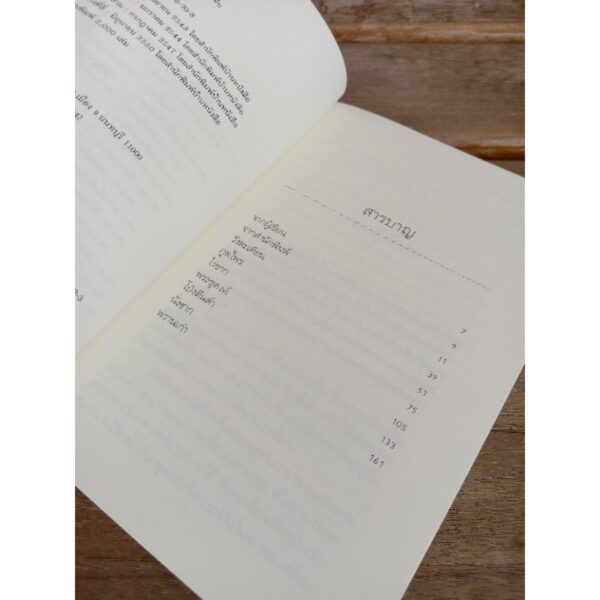 -70-8
2543 โดยสำนักพิมพ์บ้านหนังสือ
มกราคม 2544 โดยสำนักพิมพ์บ้านหนังสือ
กรกฎาคม 2547 โดยสำนักพิมพ์บ้านหนังสือ
มิถุนายน 2550 โดยสำนักพิมพ์บ้านหนังสือ
2,000 เล่ม
นนทบุรี 11000
สารบาญ
จากผู้เขียน 7
จากสำนักพิมพ์ 9
วังตะเคียน 11
ภูตไพร 39
ไอ้ซาก 51
พระธุดงค์ 75
โป่งดินดำ 105
นั่งซาก 133
พรานเก่า 161